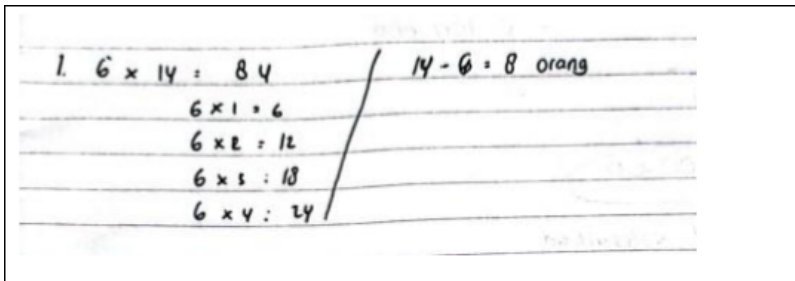 1. 6 × 14 = 84
6 × 1 = 6
6 × 2 = 12
6 × 3 = 18
6 × 4 = 24
14 - 6 = 8 orang